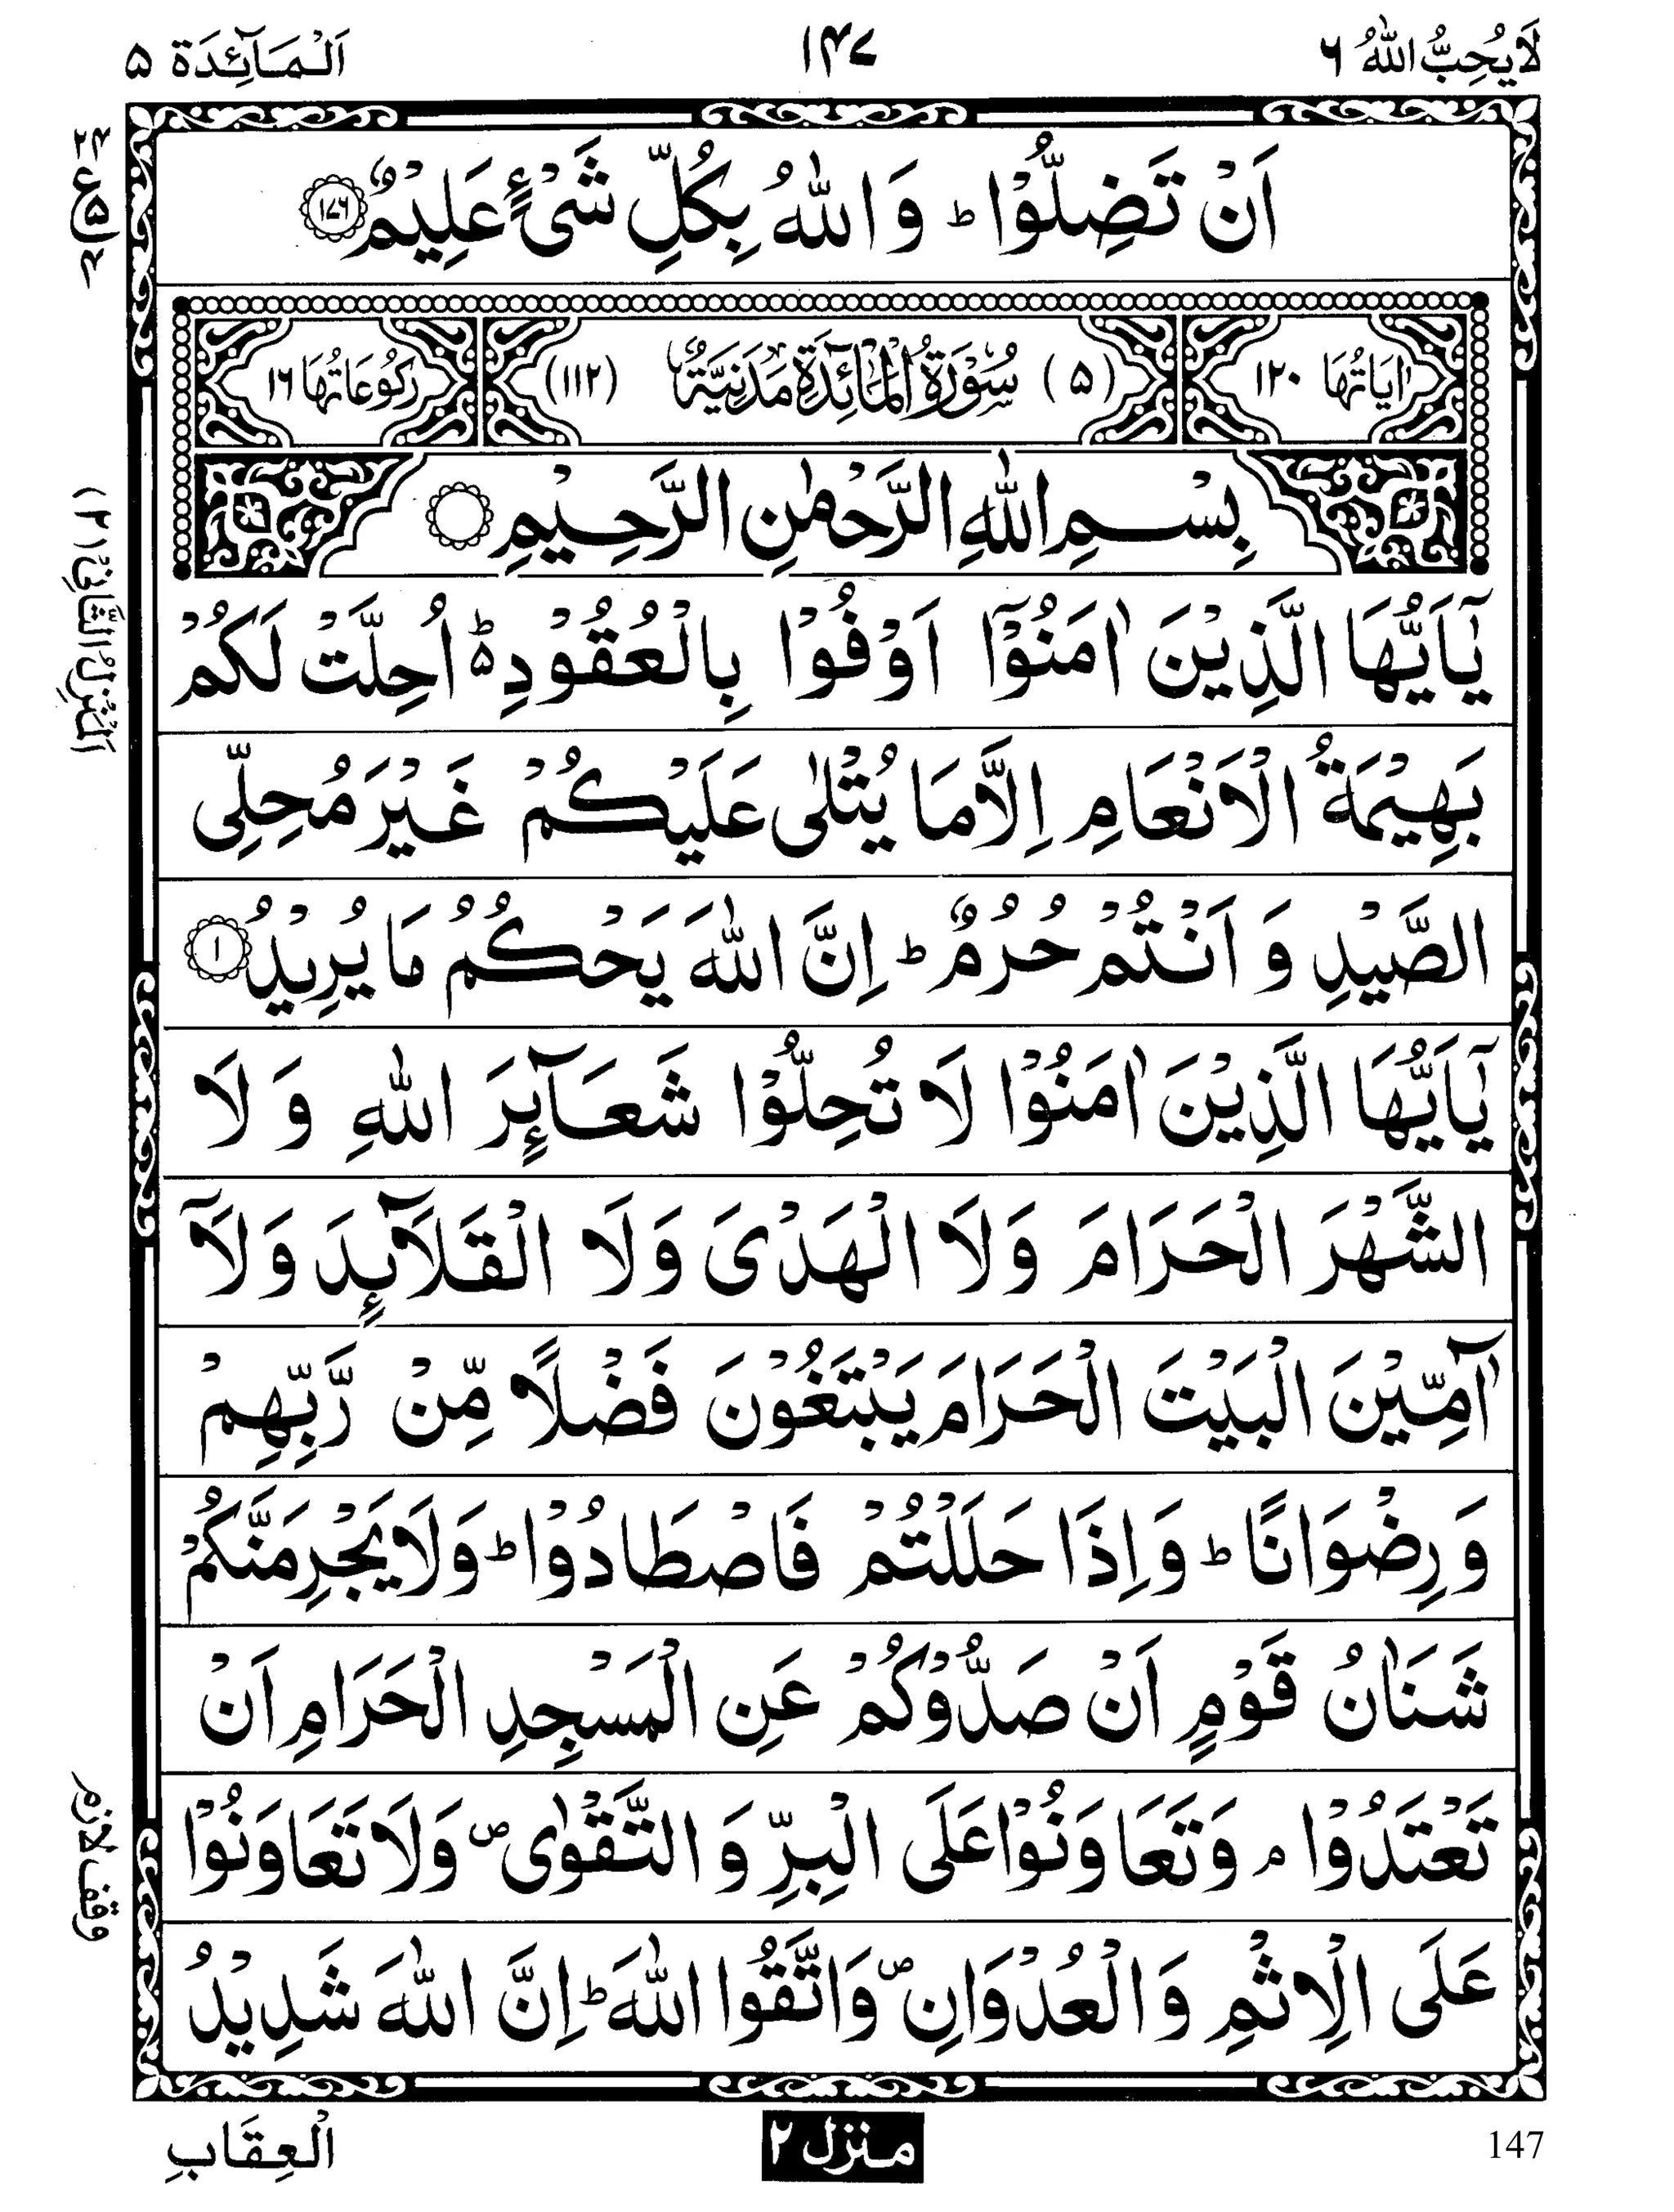 لَا يُحِبُّ اللّٰهُ ٦
١٤٧
اَلْمَآئِدَة ٥
اَنْ تَضِلُّوْا ؕ وَ اللّٰهُ بِكُلِّ شَیْءٍ عَلِیْمٌ۠ ۝١٧٦
اٰيَاتُهَا ١٢٠
(٥) سُوْرَةُ الْمَآئِدَةِ مَدَنِيَّةٌ (١١٢)
رُكُوْعَاتُهَا ١٦
بِسْمِ اللّٰهِ الرَّحْمٰنِ الرَّحِیْمِ
یٰۤاَیُّهَا الَّذِیْنَ اٰمَنُوْۤا اَوْفُوْا بِالْعُقُوْدِ ؕ۬ اُحِلَّتْ لَكُمْ
بَهِیْمَةُ الْاَنْعَامِ اِلَّا مَا یُتْلٰی عَلَیْكُمْ غَیْرَ مُحِلِّی
الصَّیْدِ وَ اَنْتُمْ حُرُمٌ ؕ اِنَّ اللّٰهَ یَحْكُمُ مَا یُرِیْدُ ۝١
یٰۤاَیُّهَا الَّذِیْنَ اٰمَنُوْا لَا تُحِلُّوْا شَعَآئِرَ اللّٰهِ وَ لَا
الشَّهْرَ الْحَرَامَ وَلَا الْهَدْیَ وَلَا الْقَلَآئِدَ وَلَاۤ
آٰمِّیْنَ الْبَیْتَ الْحَرَامَ یَبْتَغُوْنَ فَضْلًا مِّنْ رَّبِّهِمْ
وَ رِضْوَانًا ؕ وَ اِذَا حَلَلْتُمْ فَاصْطَادُوْا ؕ وَلَا یَجْرِمَنَّكُمْ
شَنَاٰنُ قَوْمٍ اَنْ صَدُّوْكُمْ عَنِ الْمَسْجِدِ الْحَرَامِ اَنْ
تَعْتَدُوْا ۘ وَتَعَاوَنُوْا عَلَی الْبِرِّ وَ التَّقْوٰی ۪ وَلَا تَعَاوَنُوْا
عَلَی الْاِثْمِ وَ الْعُدْوَانِ ۪ وَاتَّقُوا اللّٰهَ ؕ اِنَّ اللّٰهَ شَدِیْدُ
ع
٥
اَلْمَنْزِلُ الثَّانِیْ (٢)
وقف لازم
الْعِقَابِ
منزل ٢
147